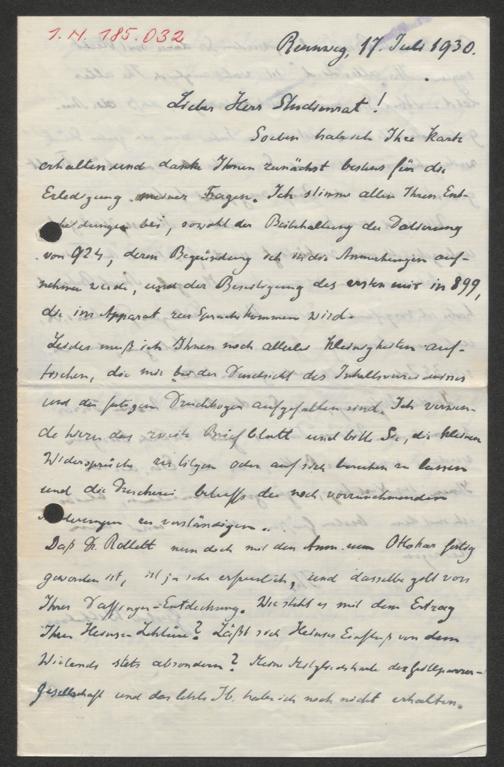 1.N.185.032
Rennweg, 17. Juli 1930.
Lieber Herr Studienrat!
Soeben habe ich Ihre Karte
erhalten und danke Ihnen zunächst bestens für die
Erledigung meiner Fragen. Ich stimme allen Ihren Ent-
scheidungen bei, sowohl der Beibehaltung der Datierung
von 924, deren Begründung ich in die Anmerkungen auf-
nehmen werde, und der Beseitigung des ersten mir in 899,
die im Apparat zur Sprache kommen wird.
Leider muß ich Ihnen noch allerlei Kleinigkeiten auf-
tischen, die mir bei der Durchsicht des Inhaltsverzeichnisses
und der fertigen Druckbogen aufgefallen sind. Ich verwen-
de hierzu das zweite Briefblatt und bitte Sie, die kleinen
Widersprüche zu tilgen oder auf sich beruhen zu lassen
und die Druckerei betreffs der noch vorzunehmenden
Änderungen zu verständigen.
Daß Dr. Rollett nun doch mit den Anm. zum Ottokar fertig
geworden ist, ist ja sehr erfreulich, und dasselbe gilt von
Ihrer Daffinger-Entdeckung. Wie steht es mit dem Ertrag
Ihrer Heinse-Lektüre? Läßt sich Heinses Einfluß von dem
Wielands stets absondern? Meine Mitgliedskarte der Grillparzer-
Gesellschaft und das letzte Jb. habe ich noch nicht erhalten.